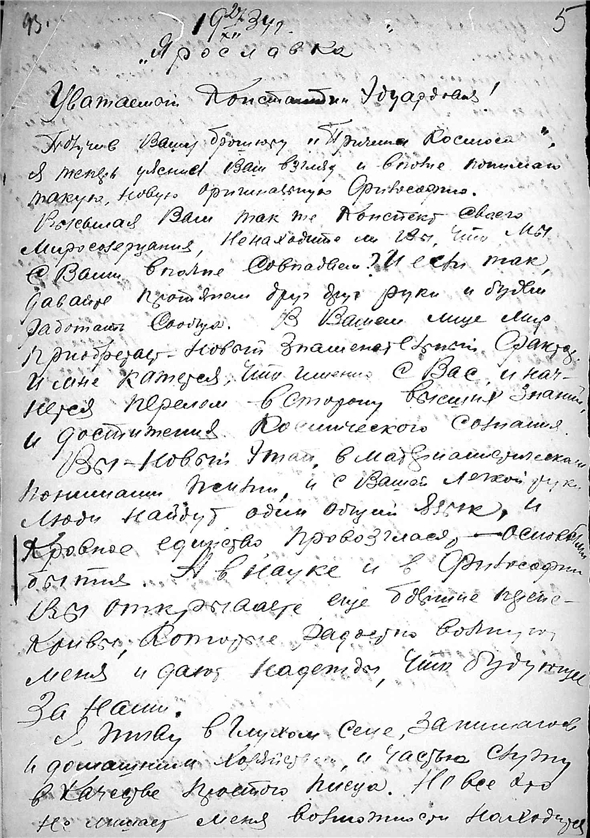 93.
5
19 27/XII 34 г.
"Ярославка"
Уважаемой Константин Эдуардович!
Получив Вашу брошюру "Причина Космоса",
я теперь уяснил Ваш взгляд и вполне понимаю
такую, новую оригинальную Философию.
Высылая Вам так же Конспект своего
Миросозерцания, Ненаходите ли Вы, что Мы
с Вами вполне Совпадаем? И если так,
давайте протянем друг другу руки и будем
работать Сообща. В Вашем лице Мир
приобретает Новый Знаменательный Фактор.
И мне кажется, что именно с Вас, и нач-
нется перелом в сторону высших знаний,
и достижения Космического сознания.
Вы — Новый Этап, в материалистическом
понимании жизни, и с Вашей легкой руки
Люди найдут один общий язык, и
Кровное единство провозглася,
бытия. А в науке и в Философии
Вы открываете еще большие перспе-
ктивы, Которые радостно волнуют
меня и дают надежды, что будующее
За Нами.
Я живу в Глухом Селе, Занимаюсь
и домашним Хозяйством, и частью служу
в качестве простого писца. Но все это
не лишает меня возможности находиться